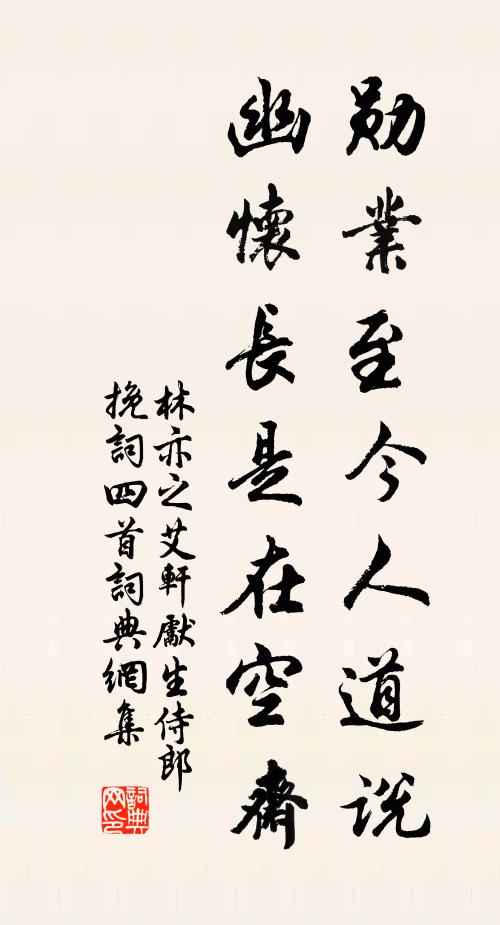 勋業至今人道说
幽懷長是在空齋
林亦之艾軒獻生侍郎
挽詞四首詞典網集
詞典
网印